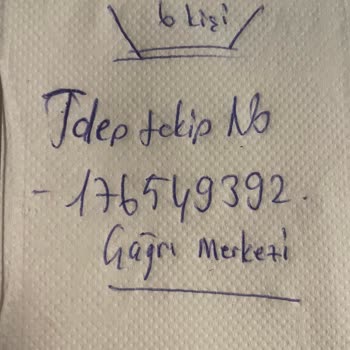 6 kişi
Tdep tekip No
- 176549392.
Çağrı Merkezi